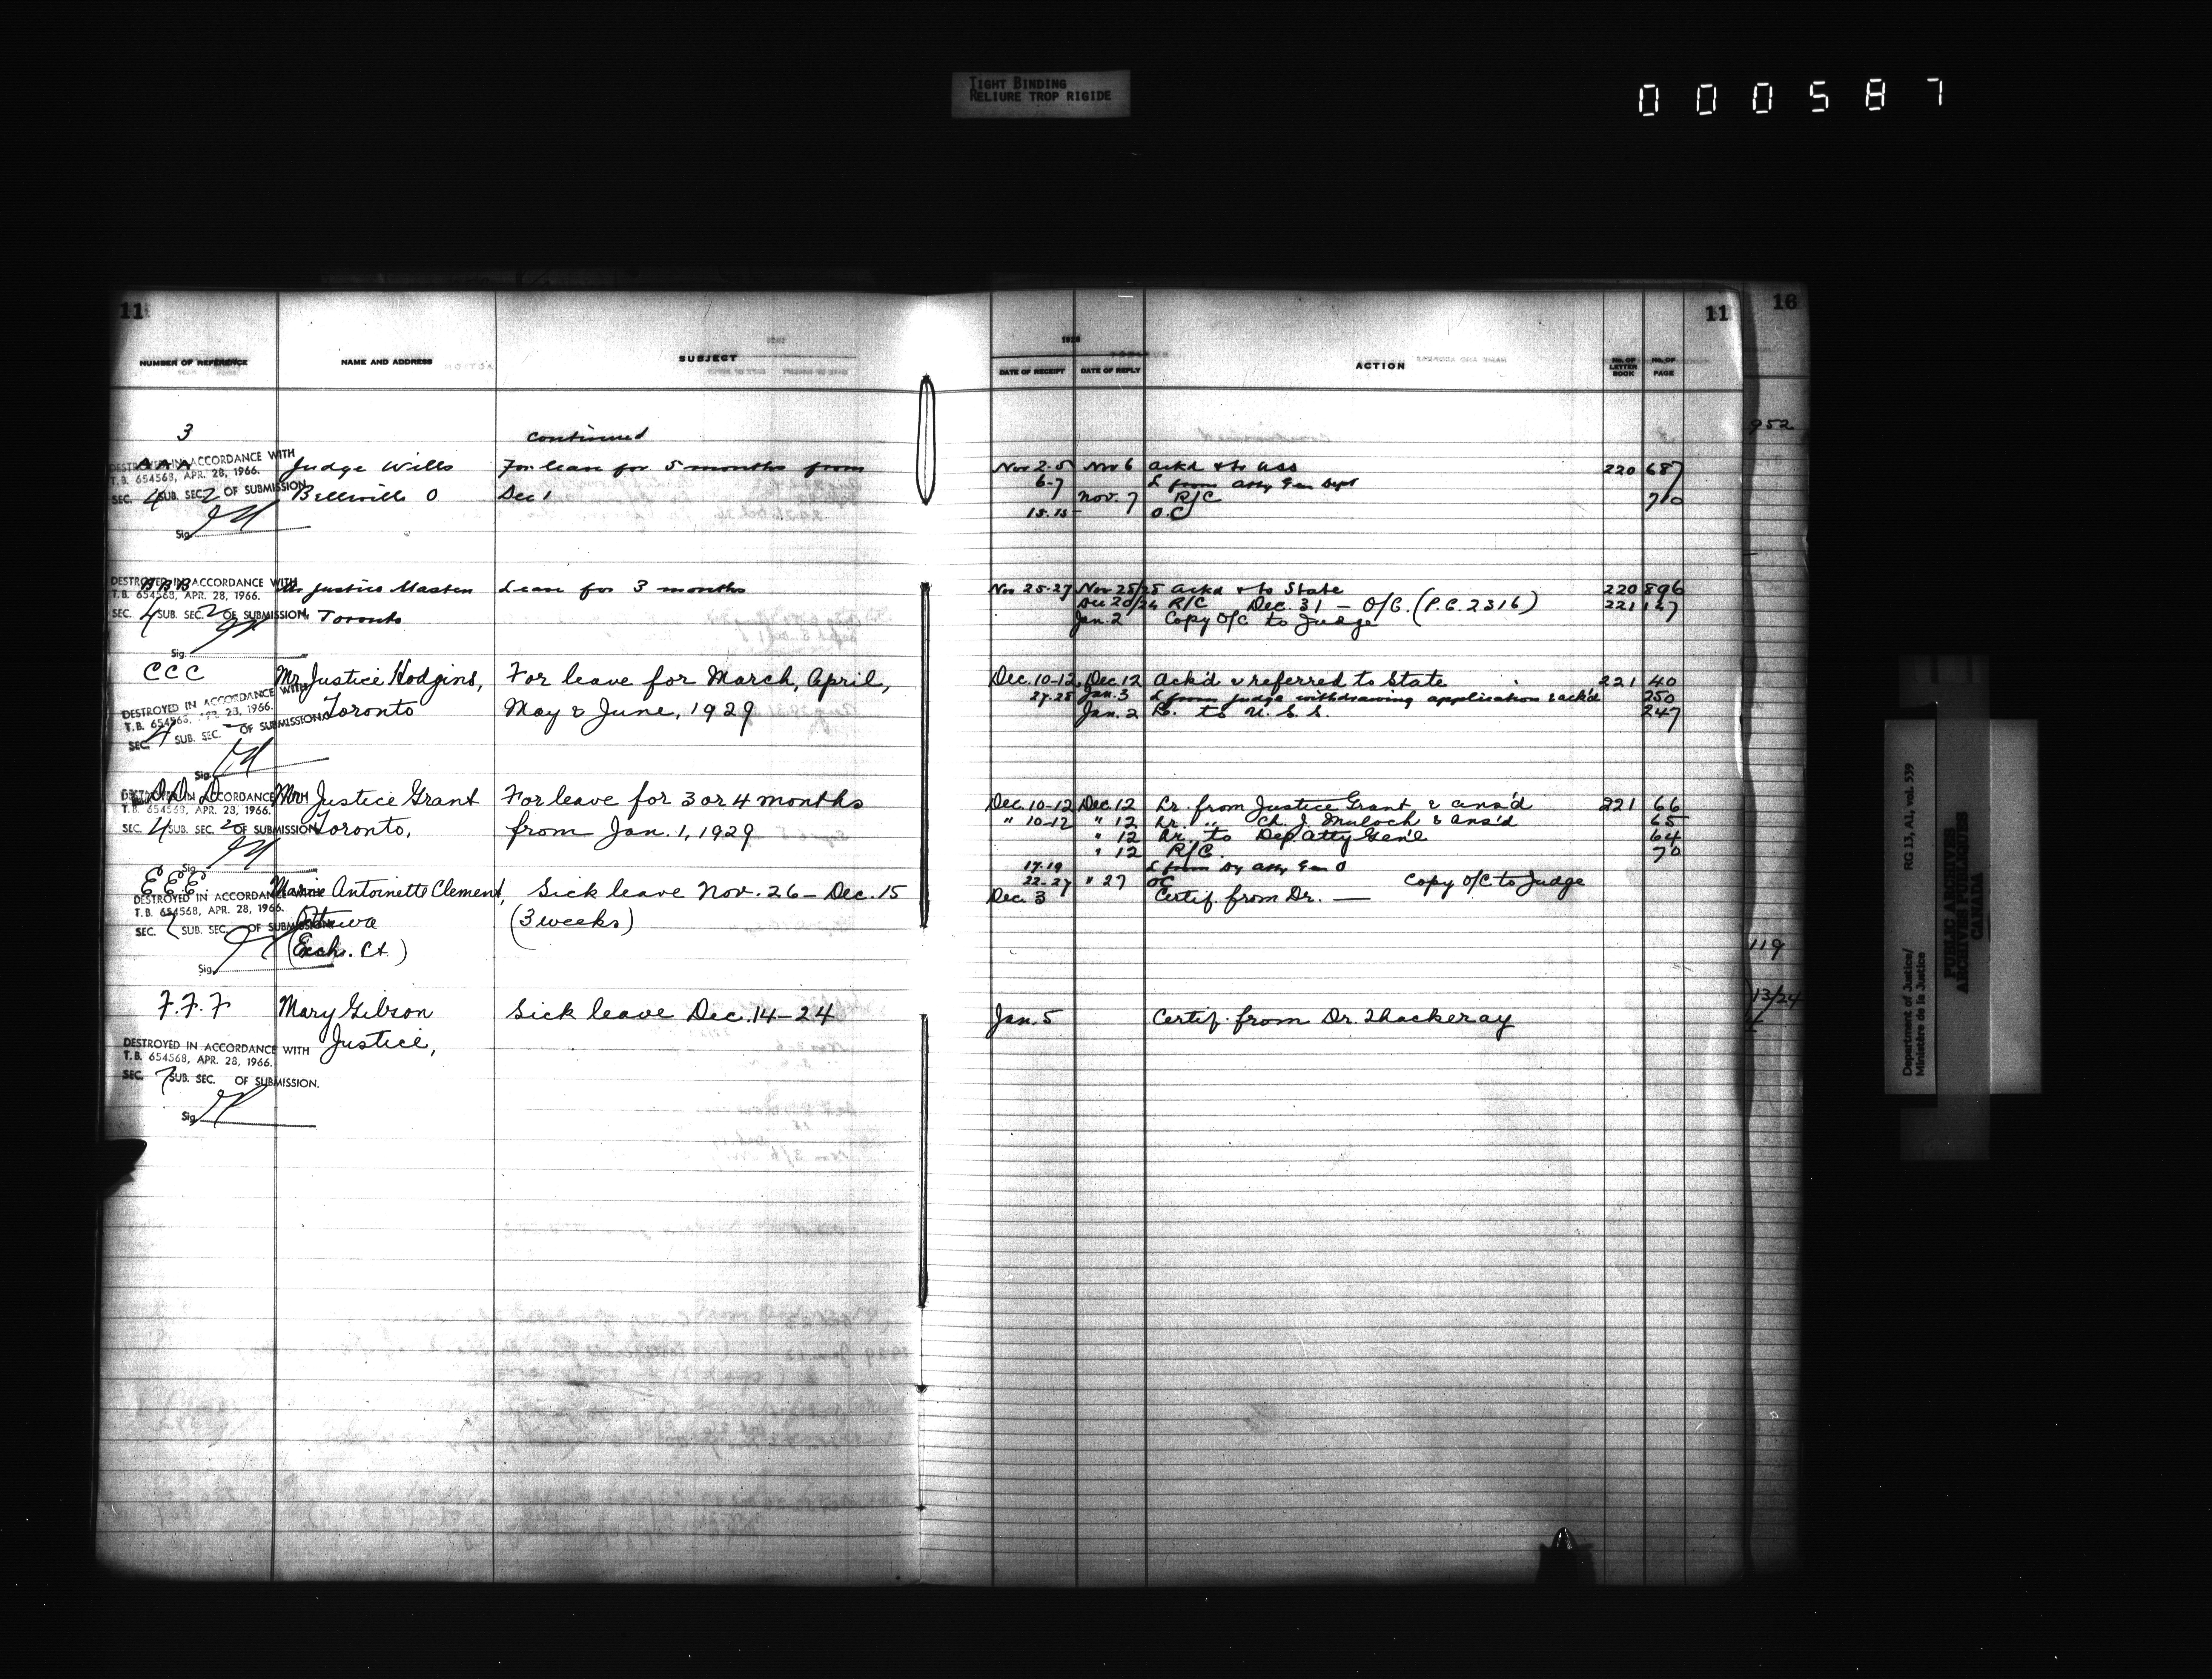 TIGHT BINDING
RELIURE TROP RIGIDE
000587
11
11
16
NUMBER OF REFERENCE
NAME AND ADDRESS
SUBJECT
1928
DATE OF RECEIPT
DATE OF REPLY
ACTION
No. OF LETTER BOOK
No. OF PAGE
3 continued
952
AAA Judge Wills For leave for 5 months from Nov 2-5 Nov 6 ackd & to USS 220 687
DESTROYED IN ACCORDANCE WITH
T.B. 654568, APR. 28, 1966.
SEC. 4 SUB. SEC. 2 OF SUBMISSION
Sig.
Belleville O Dec 1 6-7 L from Atty Gen Dept
Nov. 7 R/C 710
15.15 O.C
BBB Mr Justice Masten Leave for 3 months Nov 25-27 Nov 28/28 ackd & to State 220 896
DESTROYED IN ACCORDANCE WITH
T.B. 654568, APR. 28, 1966.
SEC. 4 SUB. SEC. 2 OF SUBMISSION
Sig.
Toronto Dec 20/24 R/C Dec. 31 — O/C. (P.C. 2316) 221 127
Jan. 2 Copy O/C to Judge
CCC Mr Justice Hodgins, For leave for March, April, Dec. 10-12 Dec. 12 Ack'd & referred to State 221 40
DESTROYED IN ACCORDANCE WITH
T.B. 654568, APR. 28, 1966.
SEC. 4 SUB. SEC. OF SUBMISSION
Sig.
Toronto May & June, 1929 27-28 Jan. 3 L from judge withdrawing application & ack'd 250
Jan. 2 to U.S.S. 247
DDD Mr Justice Grant For leave for 3 or 4 months Dec. 10-12 Dec. 12 Lr. from Justice Grant & ans'd 221 66
DESTROYED IN ACCORDANCE WITH
T.B. 654568, APR. 28, 1966.
SEC. 4 SUB. SEC. 2 OF SUBMISSION
Sig.
Toronto, from Jan. 1, 1929 " 10-12 " 12 Lr. " Ch. J. Mulock & ans'd 65
" 12 Lr. to Dep. Atty Gen'l 64
" 12 R/C. 70
17-19 L from Dy Atty Gen O
22-27 " 27 OC Copy O/C to Judge
EEE Marie Antoinette Clement, Sick leave Nov. 26 – Dec. 15 Dec. 3 Certif. from Dr. —
DESTROYED IN ACCORDANCE WITH
T.B. 654568, APR. 28, 1966.
SEC. 7 SUB. SEC. OF SUBMISSION
Sig.
Ottawa (3 weeks)
(Exch. Ct.)
119
13/24
F.F.F Mary Gibson Sick leave Dec. 14–24 Jan. 5 Certif. from Dr. Thackeray
Justice,
DESTROYED IN ACCORDANCE WITH
T.B. 654568, APR. 28, 1966.
SEC. 7 SUB. SEC. OF SUBMISSION.
Sig.
Department of Justice/
Ministère de la Justice
RG 13, A1, vol. 539
PUBLIC ARCHIVES
ARCHIVES PUBLIQUES
CANADA